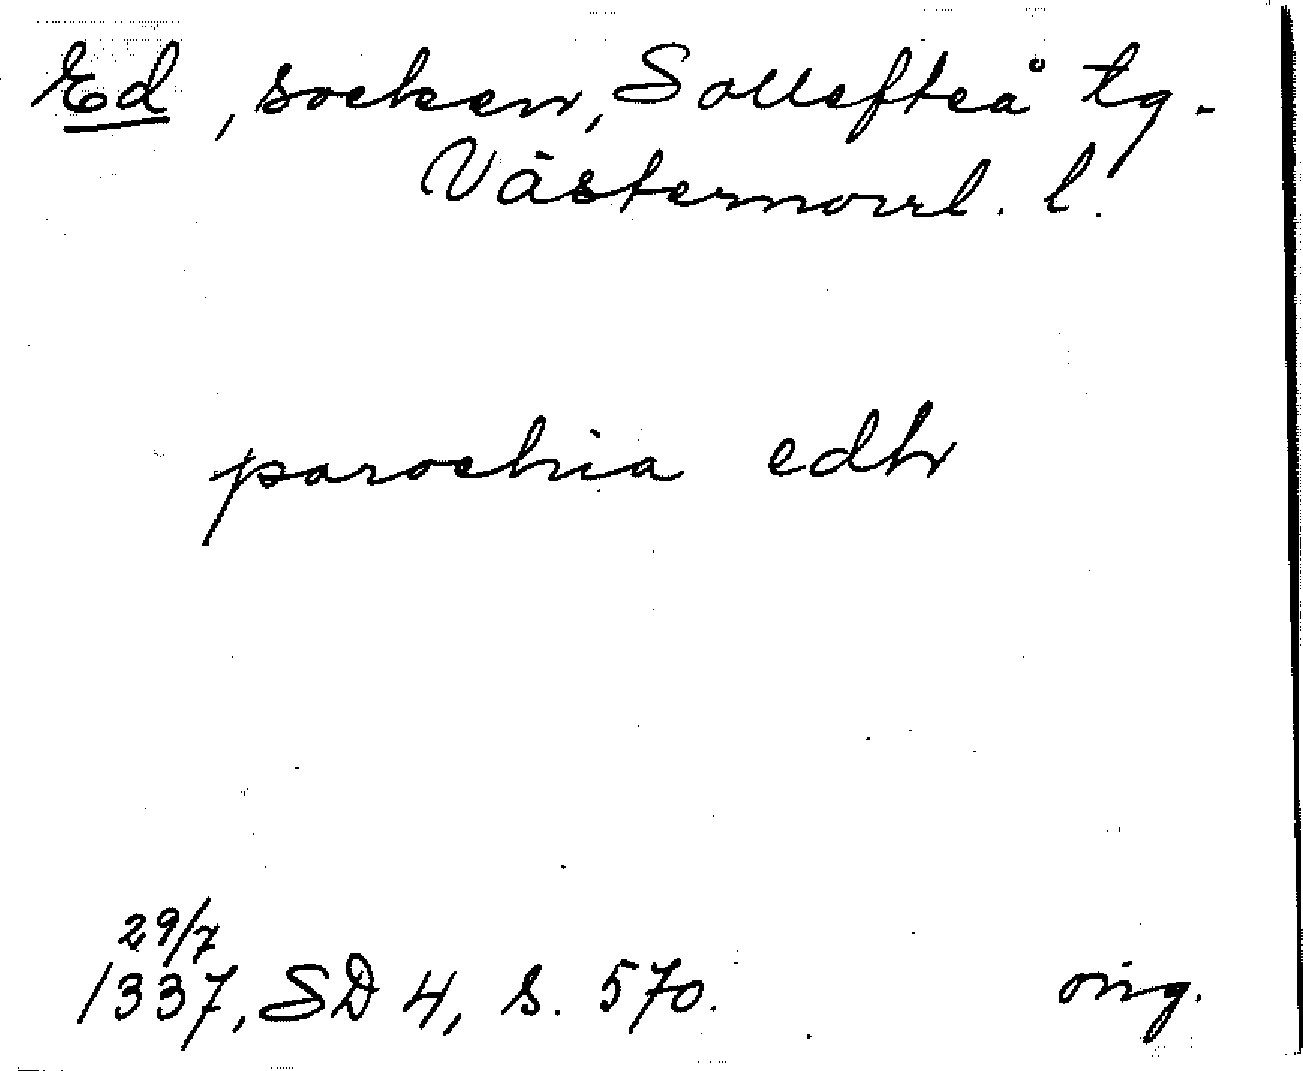 Ed, socken, Sollefteå tg.
Västernorrl. l.
parochia edh
29/7
1337, SD 4, s. 570.
orig.